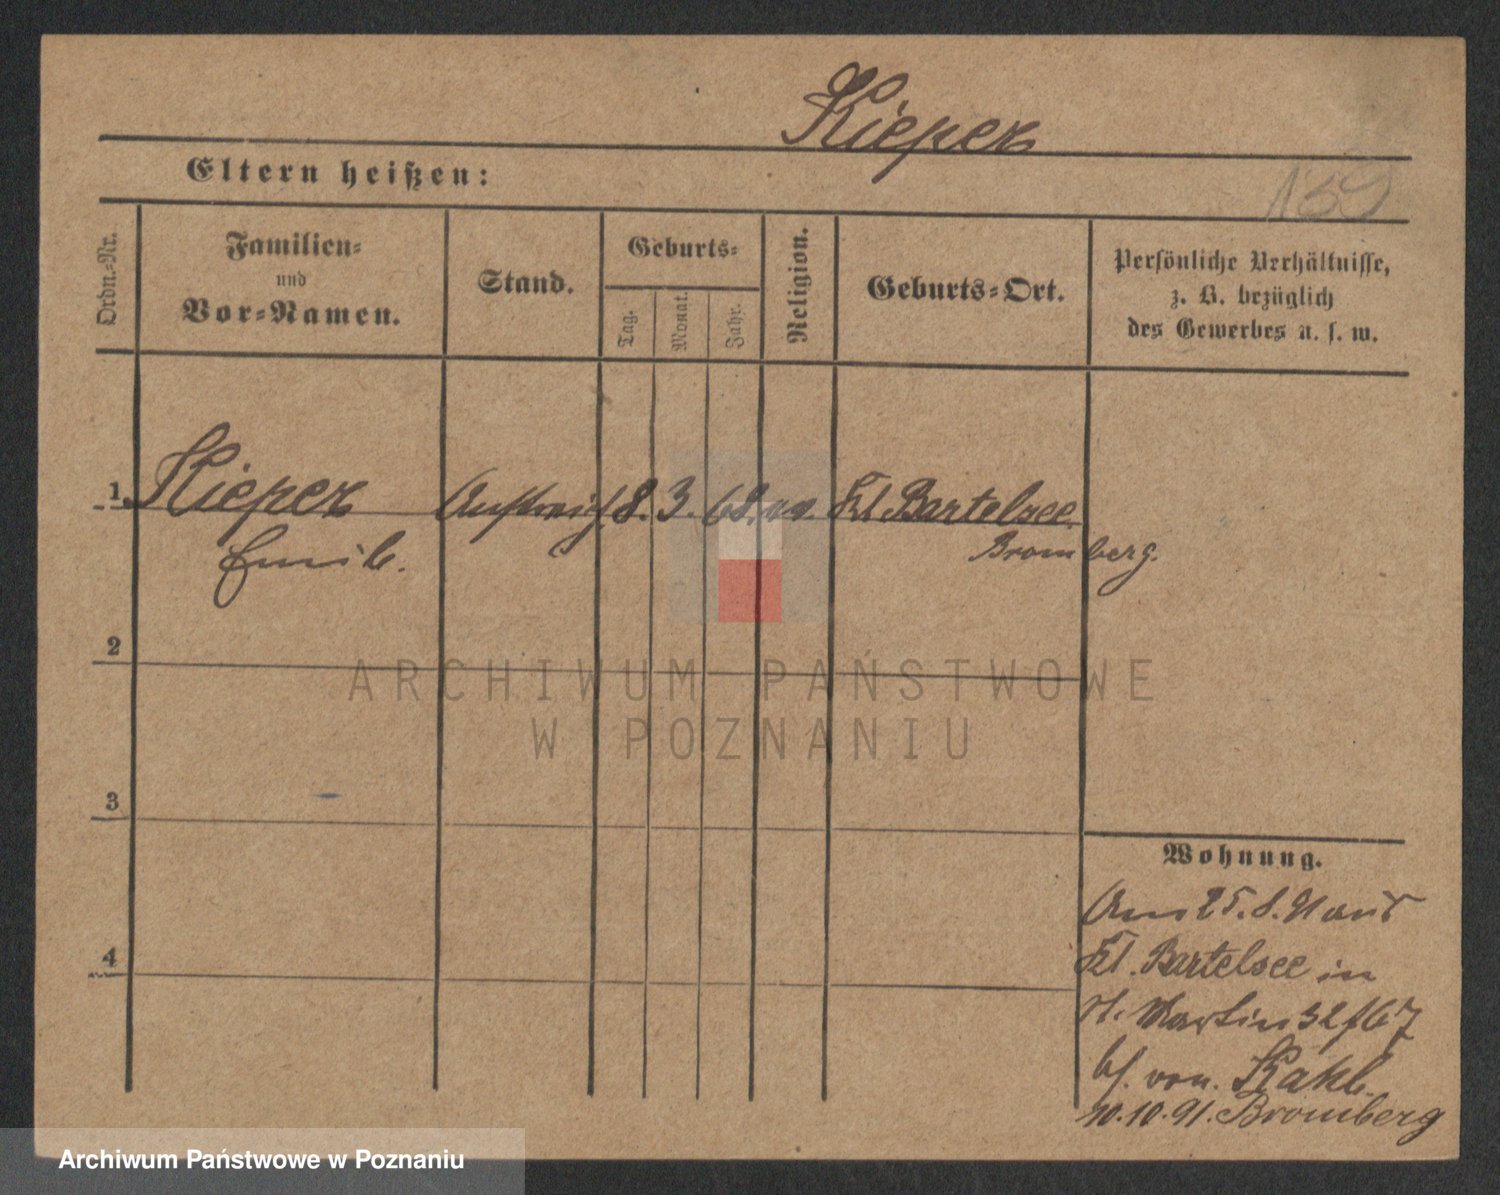 Kieper
Eltern heißen:
139
Ordn.-Nr.
Familien-
und
Vor-Namen.
Stand.
Geburts-
Tag.
Monat.
Jahr.
Religion.
Geburts-Ort.
Persönliche Verhältnisse,
z. B. bezüglich
des Gewerbes u. s. w.
1 Kieper 8. 3. 68. ev. Kl. Bartelsee
Emil. Bromberg.
2
3
4
Wohnung.
Am 25.8.91 aus
Kl. Bartelsee in
St. Martin 32
bei von
10.10.91. Bromberg
ARCHIWUM PAŃSTWOWE
W POZNANIU
Archiwum Państwowe w Poznaniu